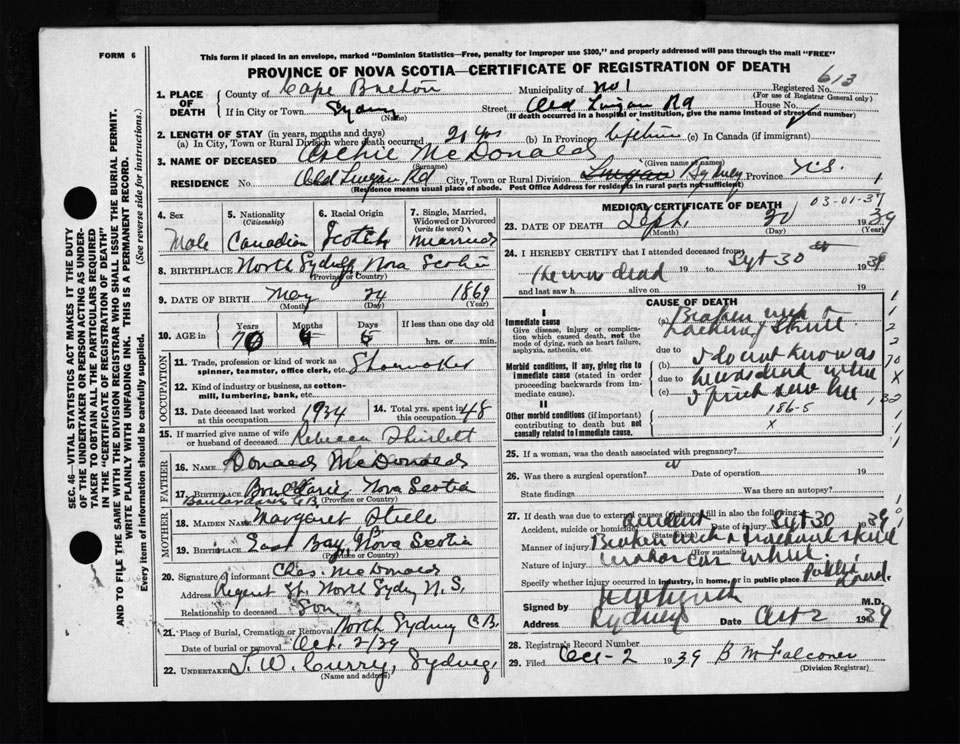 FORM 6
This form if placed in an envelope, marked "Dominion Statistics—Free, penalty for improper use $300," and properly addressed will pass through the mail "FREE"
PROVINCE OF NOVA SCOTIA—CERTIFICATE OF REGISTRATION OF DEATH
613
1. PLACE OF DEATH County of Cape Breton Municipality of No 1 Registered No.
(For use of Registrar General only)
If in City or Town Sydney (Name) Street Old Lingan Rd House No.
(If death occurred in a hospital or institution, give the name instead of street and number)
2. LENGTH OF STAY (in years, months and days)
(a) In City, Town or Rural Division where death occurred 20 yrs (b) In Province lifetime (c) In Canada (if immigrant)
3. NAME OF DECEASED Archie McDonald
(Surname) (Given name or names)
RESIDENCE No. Old Lingan Rd City, Town or Rural Division Lingan Sydney Province N.S.
(Residence means usual place of abode. Post Office Address for residents in rural parts not sufficient)
SEC. 46—VITAL STATISTICS ACT MAKES IT THE DUTY
OF THE UNDERTAKER OR PERSON ACTING AS UNDER-
TAKER TO OBTAIN ALL THE PARTICULARS REQUIRED
IN THE "CERTIFICATE OF REGISTRATION OF DEATH"
AND TO FILE THE SAME WITH THE DIVISION REGISTRAR WHO SHALL ISSUE THE BURIAL PERMIT.
WRITE PLAINLY WITH UNFADING INK. THIS IS A PERMANENT RECORD.
Every item of information should be carefully supplied. (See reverse side for instructions.)
4. Sex Male
5. Nationality (Citizenship) Canadian
6. Racial Origin Scotch
7. Single, Married, Widowed or Divorced (write the word) Married
8. BIRTHPLACE North Sydney, Nova Scotia
(Province or Country)
9. DATE OF BIRTH May 24 1869
(Month) (Day) (Year)
10. AGE in Years 70 Months Days If less than one day
hrs. or min.
OCCUPATION
11. Trade, profession or kind of work as spinner, teamster, office clerk, etc. Shoemaker
12. Kind of industry or business, as cotton-mill, lumbering, bank, etc.
13. Date deceased last worked at this occupation 1934
14. Total yrs. spent in this occupation 48
15. If married give name of wife or husband of deceased Rebecca
FATHER
16. NAME Donald McDonald
17. BIRTHPLACE Nova Scotia
(Province or Country)
MOTHER
18. MAIDEN NAME Margaret Steele
19. BIRTHPLACE East Bay, Nova Scotia
(Province or Country)
20. Signature of informant Chas. McDonald
Address Regent St. North Sydney N.S.
Relationship to deceased Son
21. Place of Burial, Cremation or Removal North Sydney C.B.
Date of burial or removal Oct. 2/39
22. UNDERTAKER T. W. Curry, Sydney,
(Name and address)
MEDICAL CERTIFICATE OF DEATH
03-01-37
23. DATE OF DEATH Sept. 30 1939
(Month) (Day) (Year)
24. I HEREBY CERTIFY that I attended deceased from
19 to Sept 30 1939
and last saw h alive on 19
CAUSE OF DEATH
I
Immediate cause
Give disease, injury or complication which caused death, not the mode of dying, such as heart failure, asphyxia, asthenia, etc.
(a) Broken neck &
skull
due to
Morbid conditions, if any, giving rise to immediate cause (stated in order proceeding backwards from immediate cause).
(b) I do not know as
due to he was dead when
(c) I first saw him
II
Other morbid conditions (if important) contributing to death but not causally related to immediate cause.
186-5
x
25. If a woman, was the death associated with pregnancy?
26. Was there a surgical operation? Date of operation 19
State findings Was there an autopsy?
27. If death was due to external causes (violence) fill in also the following:
Accident, suicide or homicide? accident Date of injury Sept 30 1939
(State which)
Manner of injury Broken neck & fractured skull
(How sustained)
Nature of injury
Specify whether injury occurred in industry, in home, or in public place Public road.
Signed by M.D.
Address Sydney Date Oct 2 1939
28. Registrar's Record Number
29. Filed Oct-2 1939 B McFalconer
(Division Registrar)